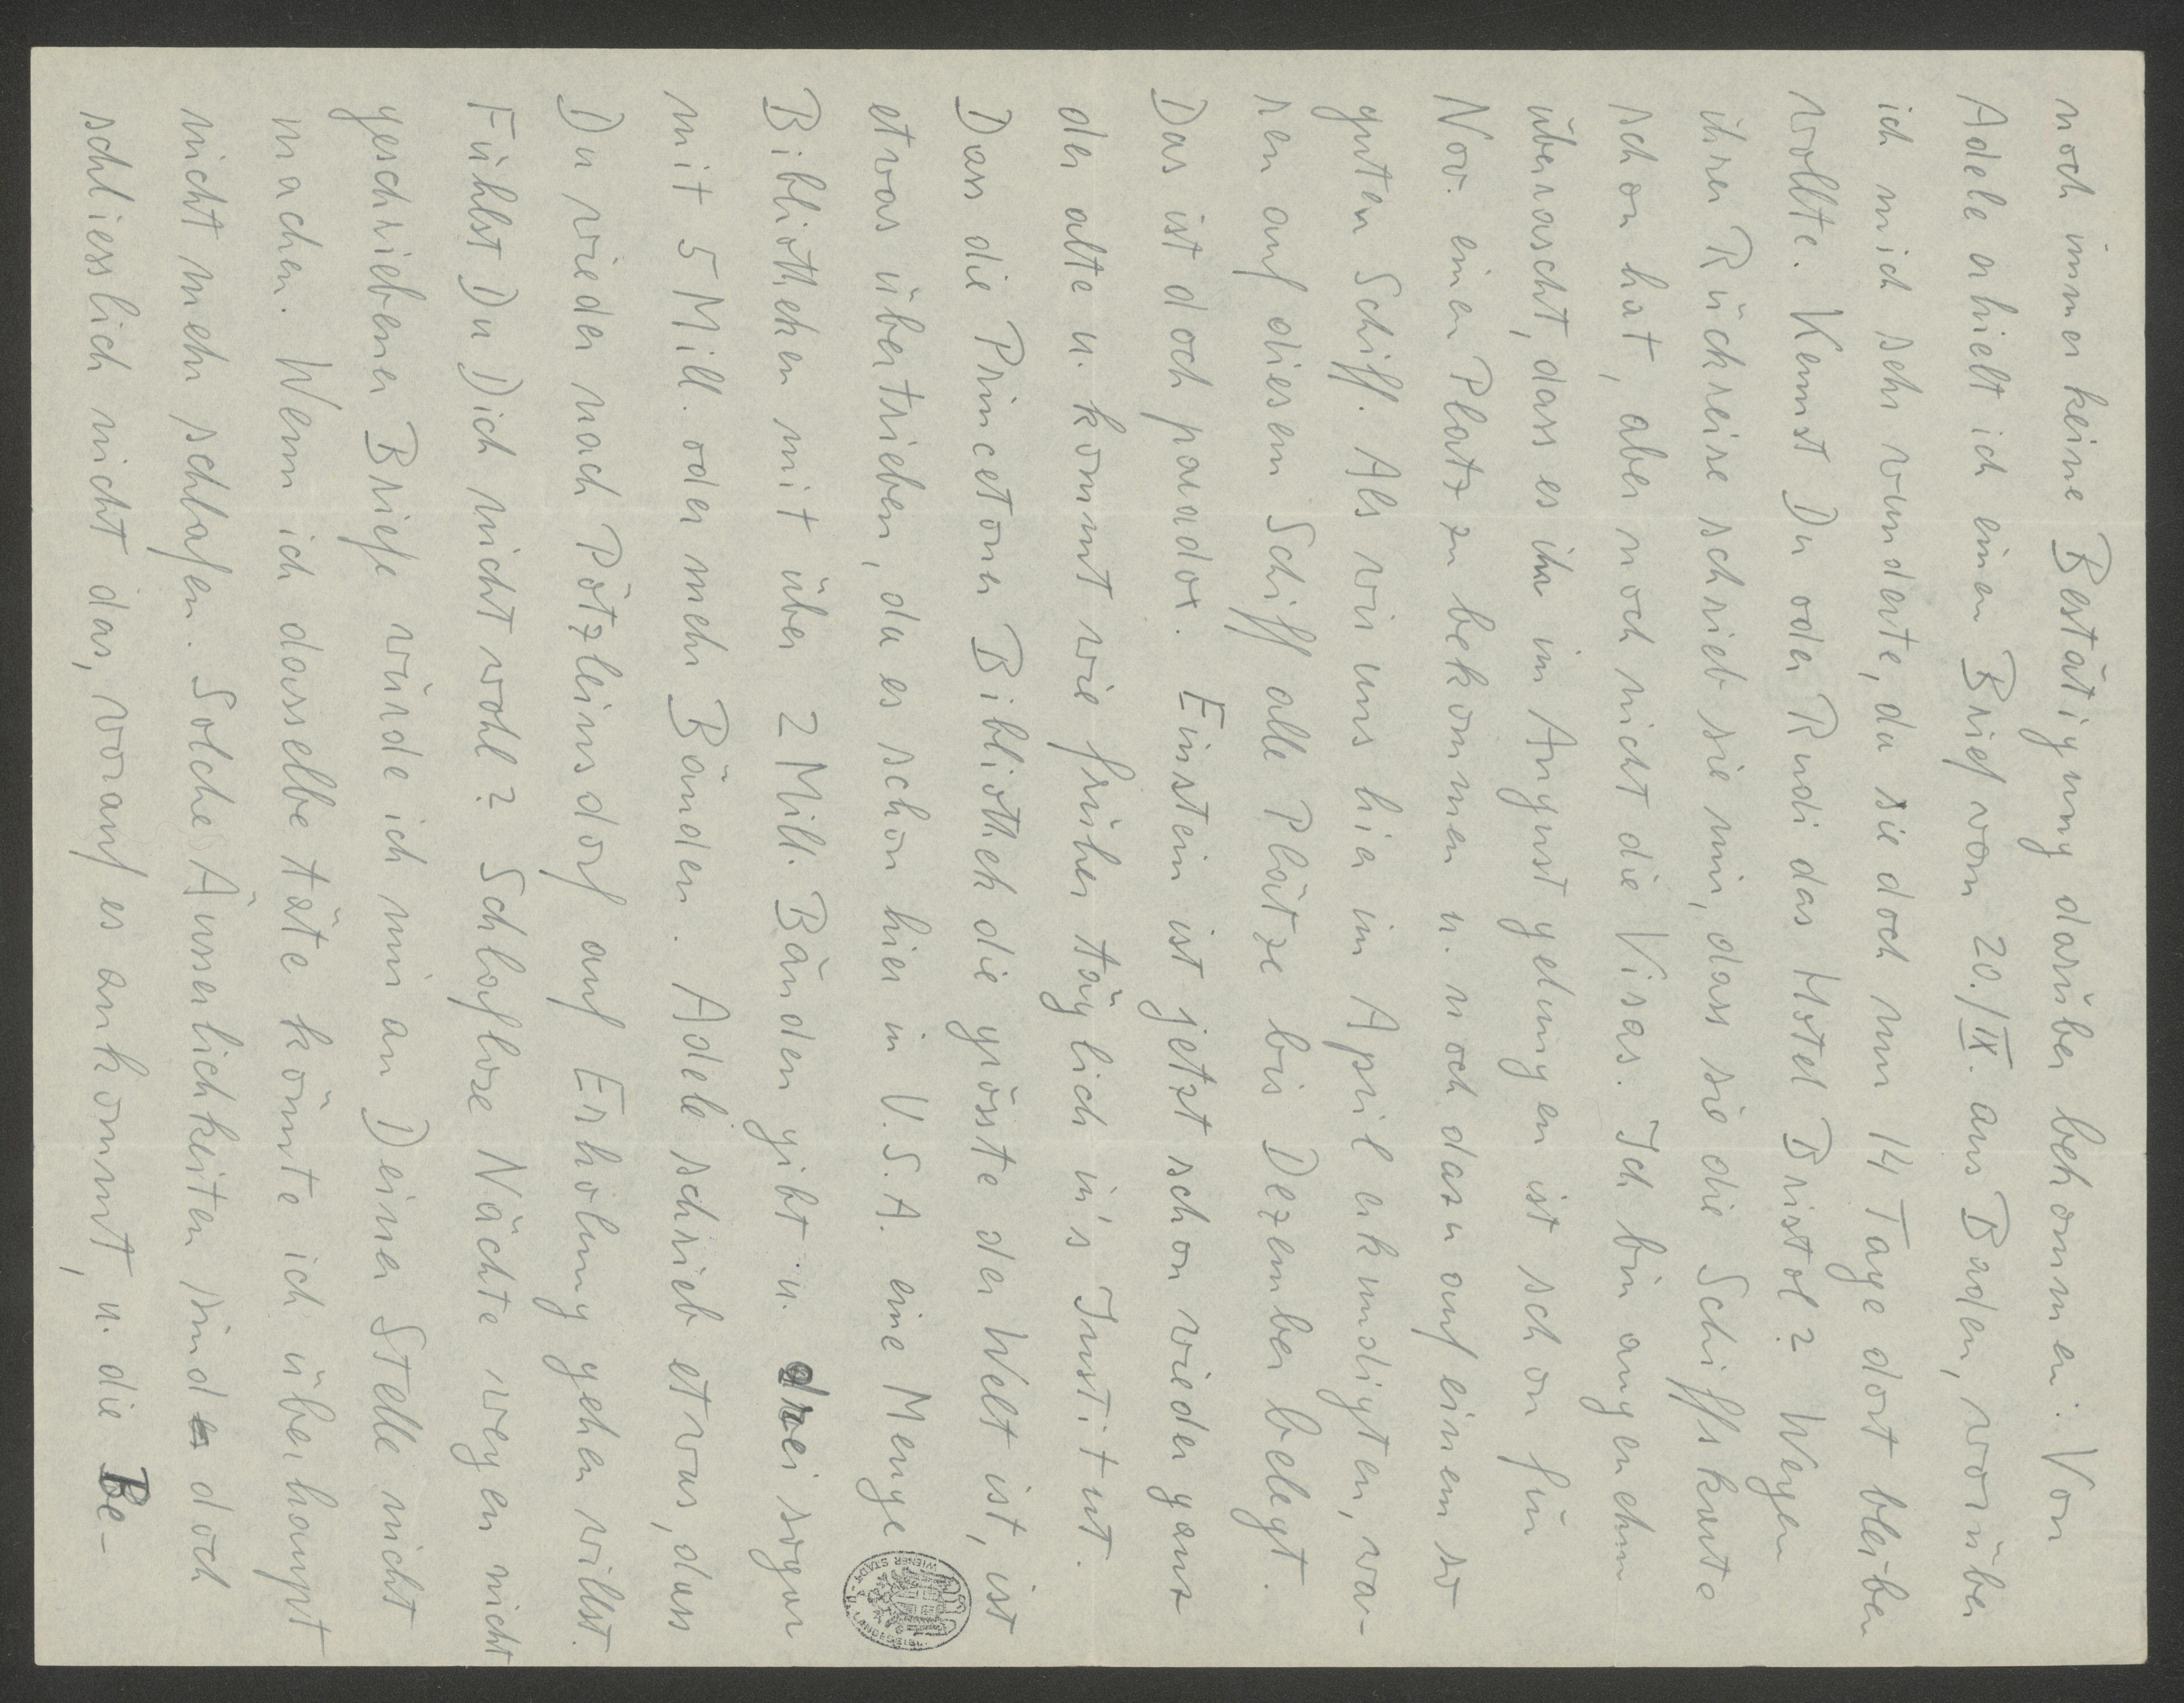 noch immer keine Bestätigung darüber bekommen. Von
Adele erhielt ich einen Brief vom 20./IX. aus Baden, worüber
ich mich sehr wunderte, da sie doch nur 14 Tage dort bleiben
wollte. Kennst Du oder Rudi das Hotel Bristol? Wegen
ihrer Rückreise schrieb sie mir, dass sie die Schiffskarte
schon hat, aber noch nicht die Visas. Ich bin angenehm
überrascht, dass es ihr im August gelungen ist schon für
Nov. einen Platz zu bekommen u. noch dazu auf einem so
guten Schiff. Als wir uns hier im April erkundigten, wa-
ren auf diesem Schiff alle Plätze bis Dezember belegt.
Das ist doch paradox. Einstein ist jetzt schon wieder ganz
der alte u. kommt wie früher täglich in's Institut.
Dass die Princetoner Bibliothek die grösste der Welt ist, ist
etwas übertrieben, da es schon hier in U.S.A. eine Menge
Bibliotheken mit über 2 Mill. Bänden gibt u. drei sogar
mit 5 Mill. oder mehr Bänden. Adele schrieb etwas, dass
Du wieder nach Pötzleinsdorf auf Erholung gehen willst.
Fühlst Du Dich nicht wohl? Schlaflose Nächte wegen nicht
geschriebener Briefe würde ich mir an Deiner Stelle nicht
machen. Wenn ich dasselbe täte könnte ich überhaupt
nicht mehr schlafen. Solche Äusserlichkeiten sind doch
schliesslich nicht das, worauf es ankommt, u. die Be-
WIENER STADT-